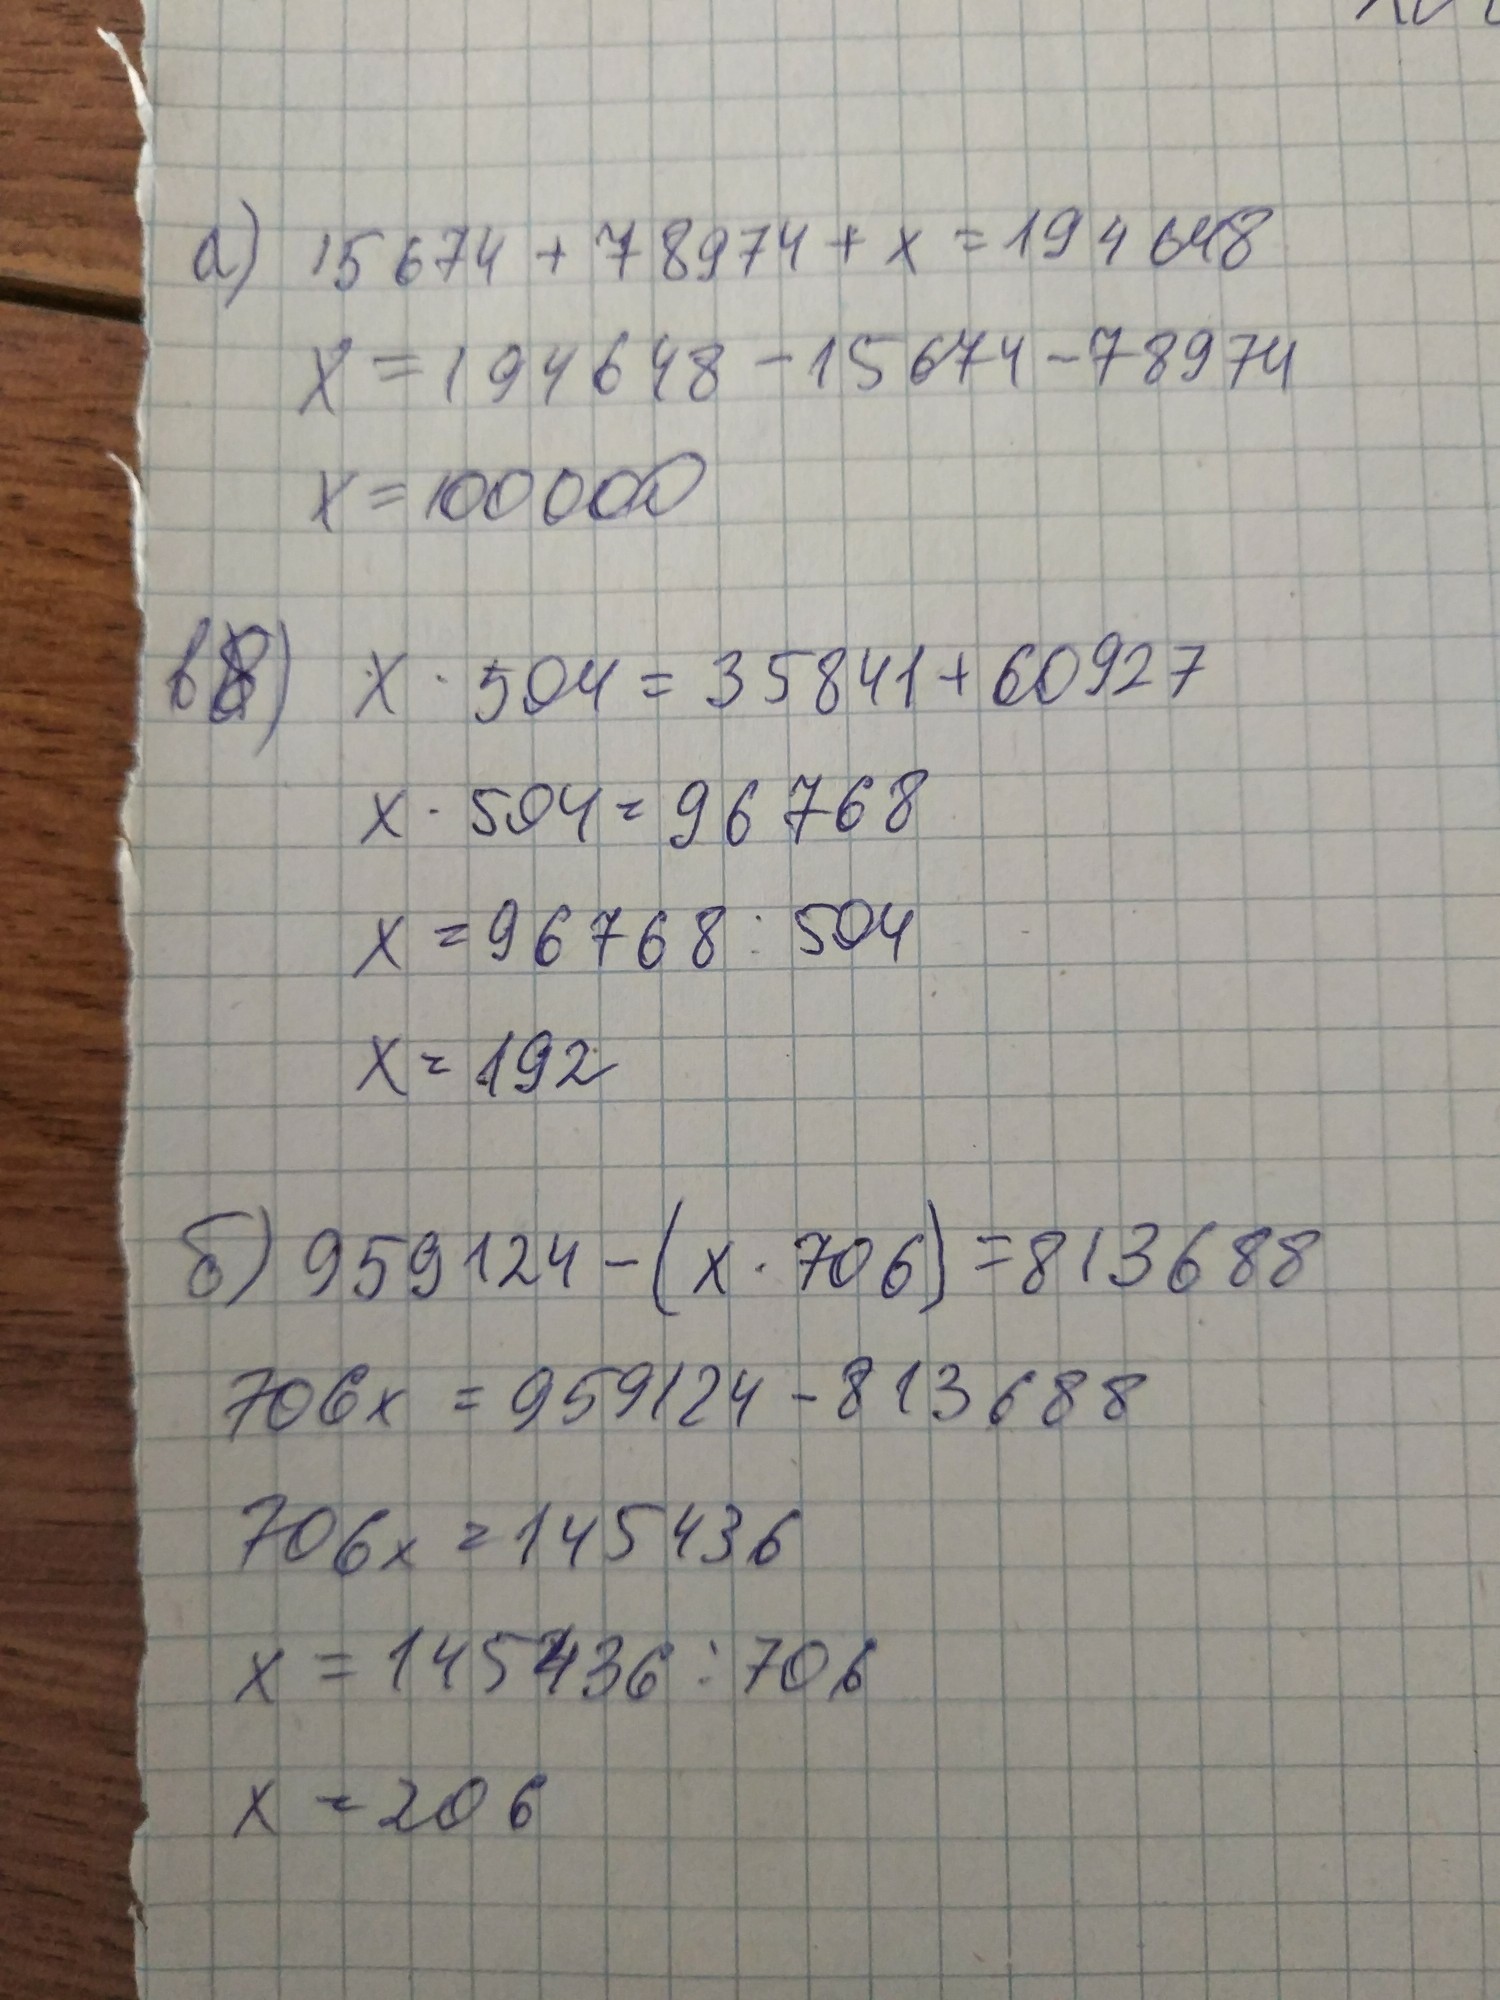 а) 15674 + 78974 + x = 194648
x = 194648 - 15674 - 78974
x = 100000
в) x · 504 = 35841 + 60927
x · 504 = 96768
x = 96768 : 504
x = 192
б) 959124 - (x · 706) = 813688
706x = 959124 - 813688
706x = 145436
x = 145436 : 706
x = 206